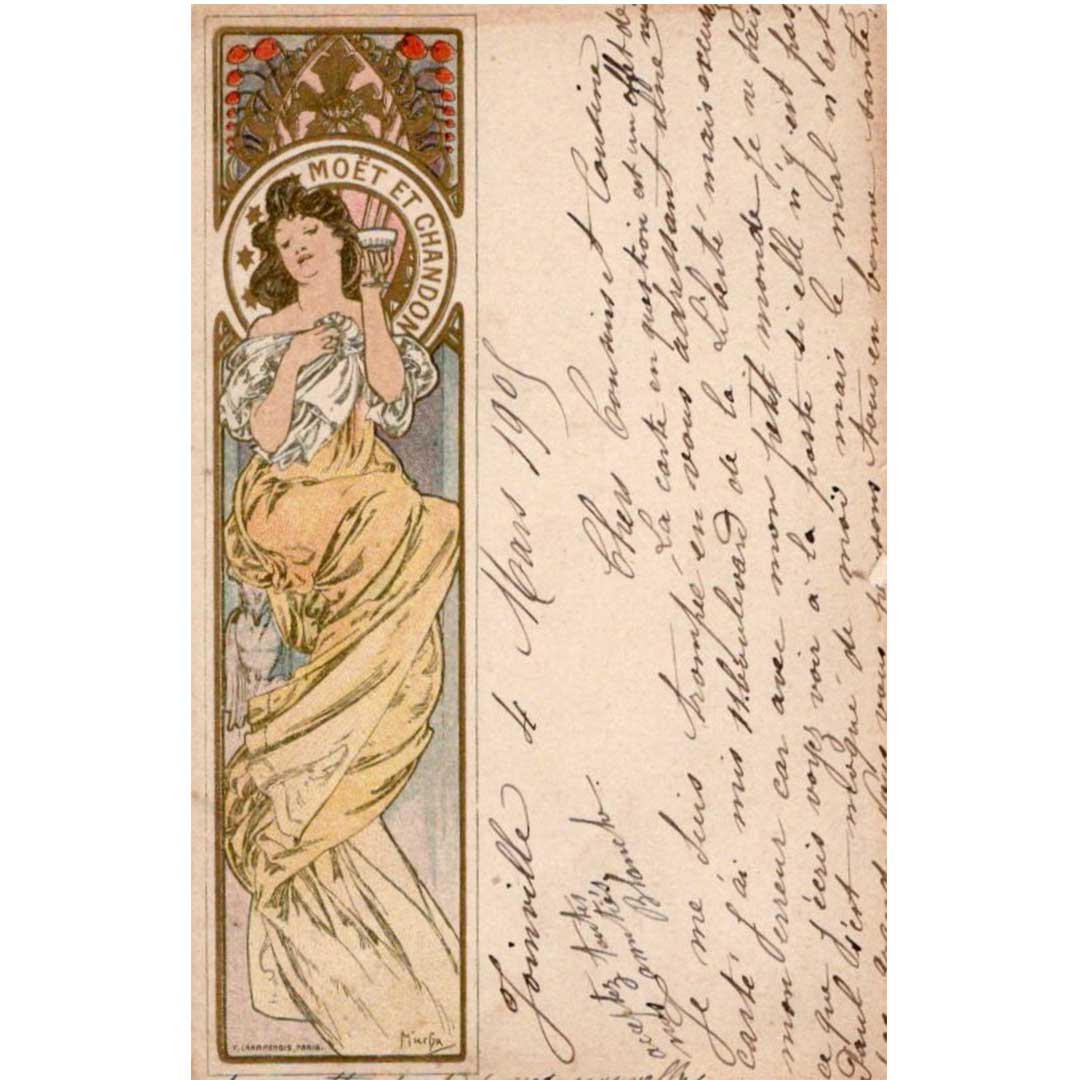 MOËT ET CHANDON
F. CHAMPENOIS, PARIS.
Mucha
Joinville 4 Mars 1905
Chers Cousins et Cousine
La carte en question est un effet de
Je me suis trompée en vous adressant une
carte j'ai mis 17 boulevard de la Liberté mais
mon erreur car avec mon petit monde je ne sais
ce que j'écris voyez voir à la poste si elle n'y est pas
Paul s'est moqué de moi mais le mal n'est
vous tous en bonne santé
acceptez toutes
mes amitiés
Blanche.